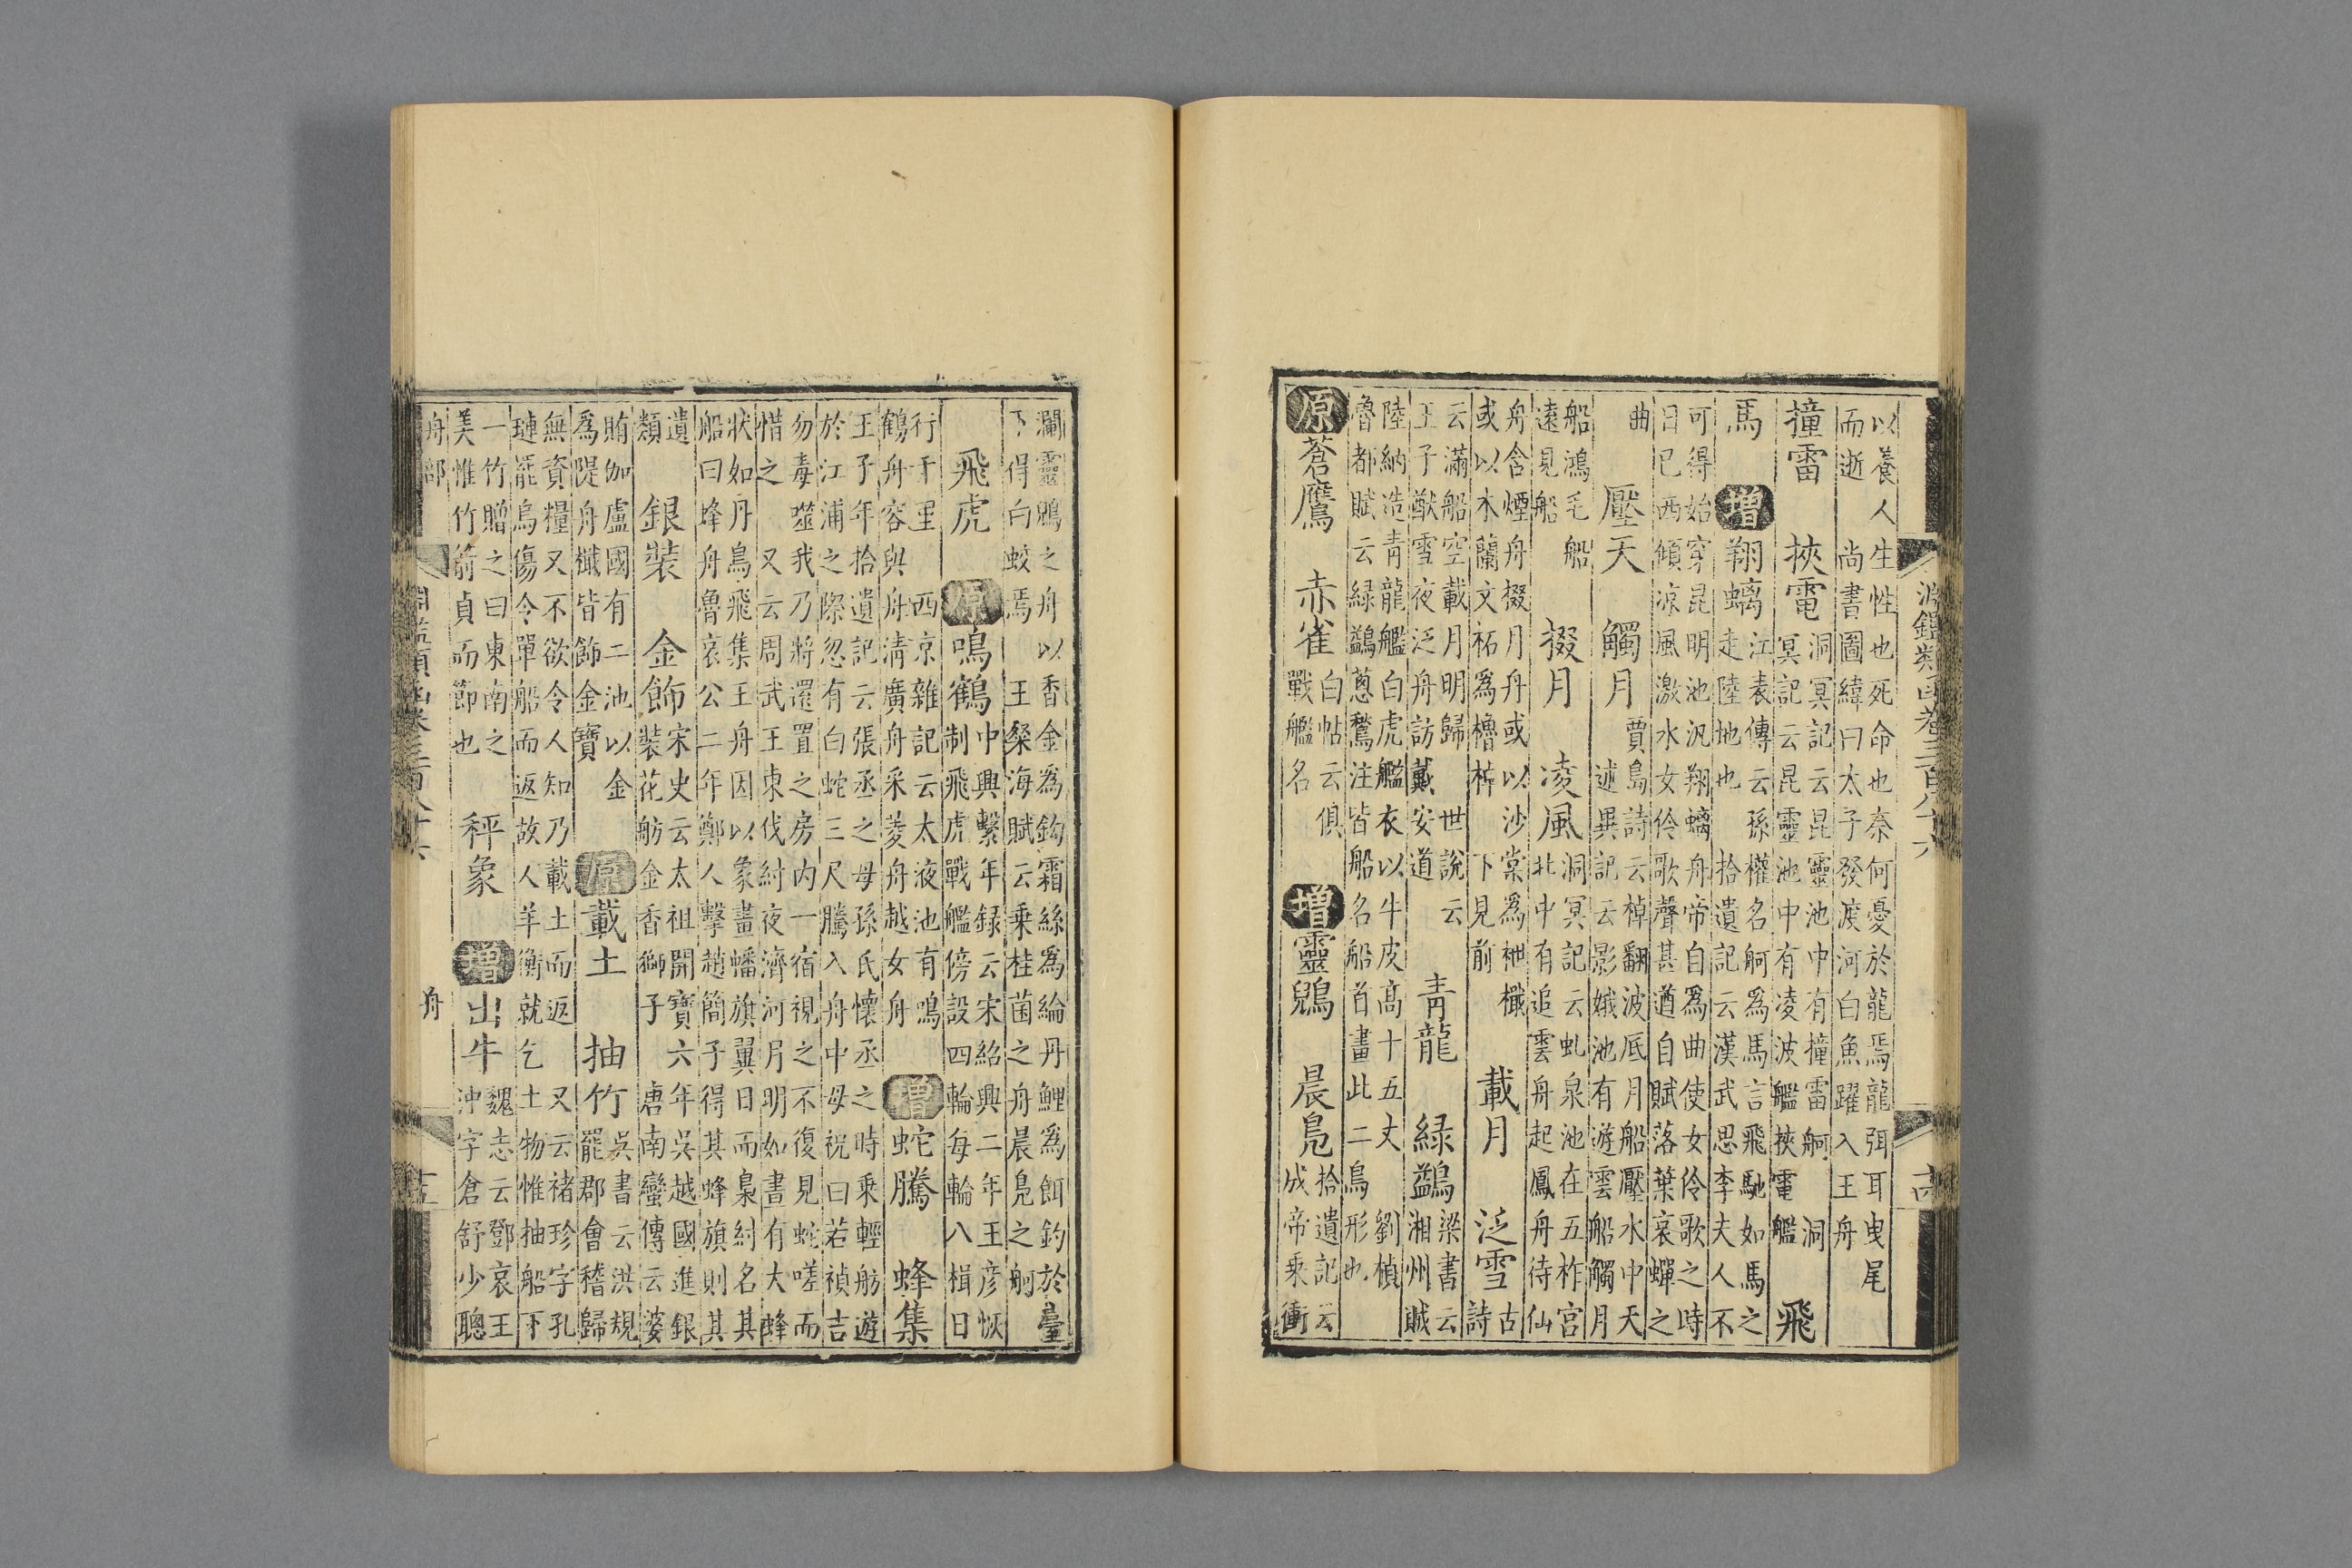 淵鑑類函卷三百八十六
以養人生性也死命也奈何憂於龍焉龍弭耳曳尾
而逝 尚書圖緯曰太子發渡河白魚躍入王舟
撞雷 挾電 洞冥記云昆靈池中有撞雷舸 洞
冥記云昆靈池中有凌波艦挾電艦 飛
馬 增 翔螭 江表傳云孫權名舸為馬言飛馳如馬之
走陸地也 拾遺記云漢武思李夫人不
可得始穿昆明池汎翔螭舟帝自為曲使女伶歌之時
日已西傾涼風激水女伶歌聲甚遒自賦落葉哀蟬之
曲 壓天 觸月 賈島詩云棹翻波底月船壓水中天
述異記云影娥池有遊雲船觸月
船鴻毛船
遠見船 掇月 凌風 洞冥記云虬泉池在五柞宮
北中有追雲舟起鳳舟待仙
舟含煙舟掇月舟或以沙棠為枻檝
或以木蘭文柘為櫓棹 下見前 載月 泛雪 古
詩
云滿船空載月明歸 世說云
王子猷雪夜泛舟訪戴安道 青龍 綠鷁 梁書云
湘州賊
陸納造青龍艦白虎艦衣以牛皮高十五丈 劉楨
魯都賦云綠鷁蔥鶖注皆船名船首畫此二鳥形也
原 蒼鷹 赤雀 白帖云俱
戰艦名 增 靈鶂 晨鳧 拾遺記云
成帝乘衝
瀾靈鶂之舟以香金為鈎霜絲為綸丹鯉為餌釣於臺
下得白蛟焉 王粲海賦云乘桂菌之舟晨鳧之舸
飛虎 原 鳴鶴 中興繫年錄云宋紹興二年王彥恢
制飛虎戰艦傍設四輪每輪八楫日
行千里 西京雜記云太液池有鳴
鶴舟容與舟清廣舟采菱舟越女舟 增 蛇騰 蜂集
王子年拾遺記云張丞之母孫氏懷丞之時乘輕舫遊
於江浦之際忽有白蛇三尺騰入舟中母祝曰若禎吉
勿毒噬我乃將還置之房內一宿視之不復見蛇嗟而
惜之 又云周武王東伐紂夜濟河月明如晝有大蜂
狀如丹鳥飛集王舟因以象畫旛旗翼日而梟紂名其
船曰蜂舟魯哀公二年鄭人擊趙簡子得其蜂旗則其
遺
類 銀裝 金飾 宋史云太祖開寶六年吳越國進銀
裝花舫金香獅子 唐南蠻傳云婆
賄伽盧國有二池以金
為隄舟檝皆飾金寶 原 載土 抽竹 吳書云洪規
罷郡會稽歸
無資糧又不欲令人知乃載土而返 又云禇珍字孔
璉罷烏傷令單船而返故人羊衡就乞土物惟抽船下
一竹贈之曰東南之
美惟竹箭貞而節也 秤象 增 出牛 魏志云鄧哀王
沖字倉舒少聰
舟部 舟